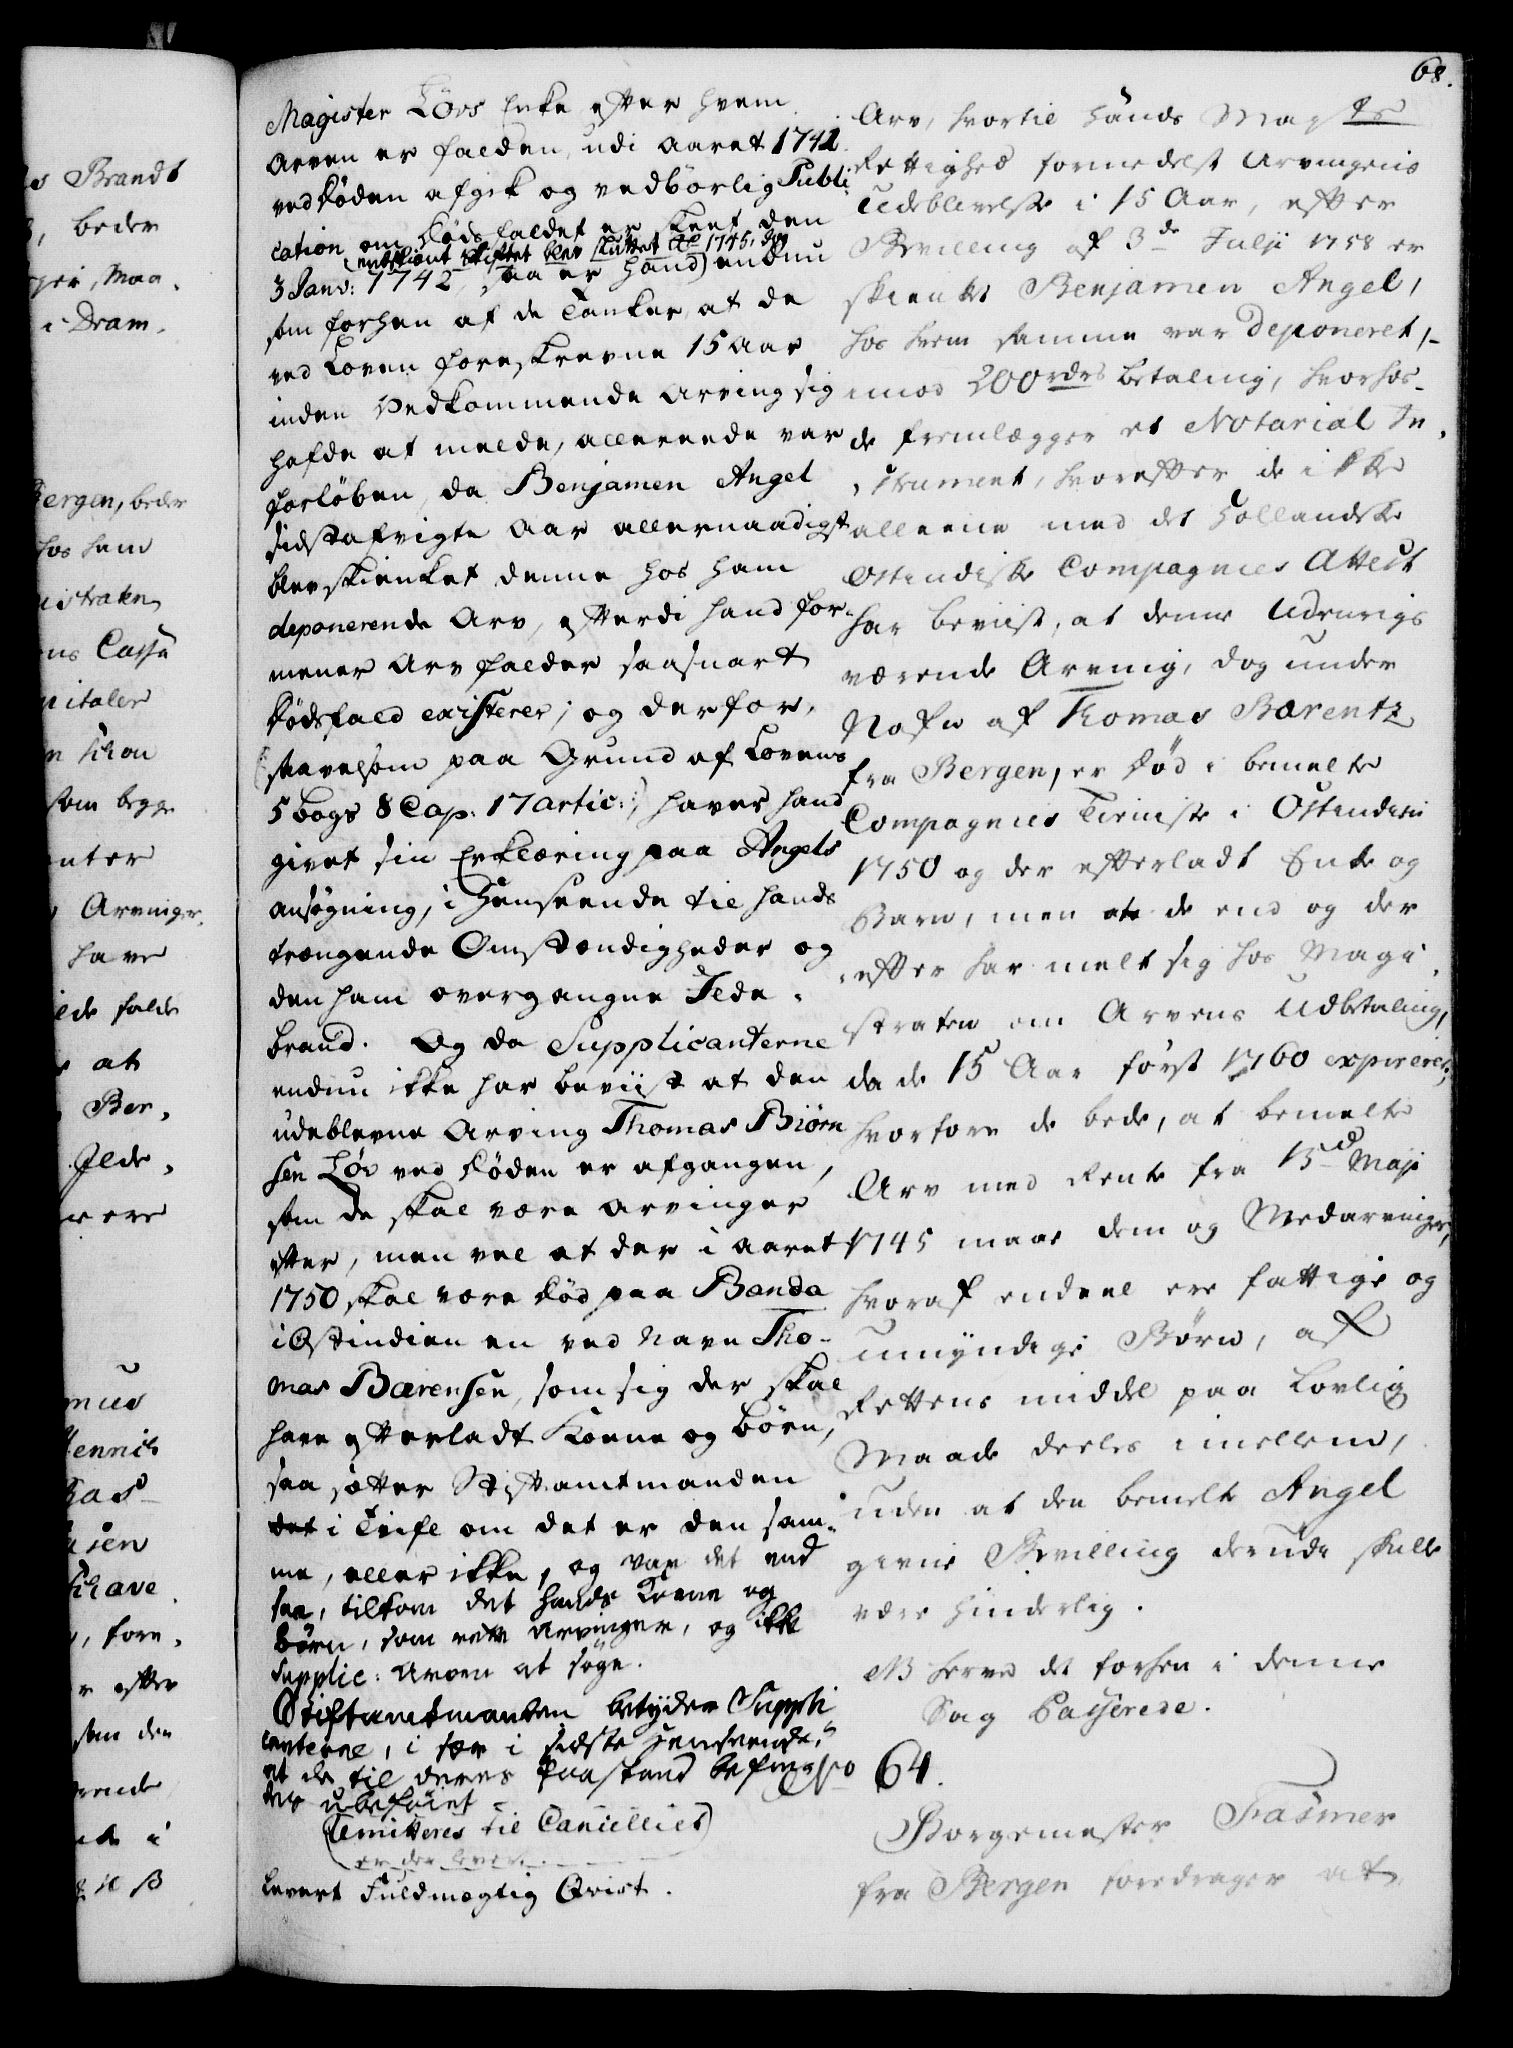 68.
Magister Løvs Enke efter hvem
Arven er falden, udi Aaret 1741
ved Døden afgik og vedbörlig Publi-
cation om Dödsfaldet er skeet den
(endskiönt Skiftet blev sluttet Ao 1745, dog
3 Janv: 1742, saa er hand) endnu
som forhen af de Tanker, at de
ved Loven foreskrevne 15 Aar
inden Vedkommende Arving sig
hafde at melde, allereede var
forlöben, da Benjamen Angel
sidstafvigte Aar allernaadigst
blev skienket denne hos ham
deponerende Arv, efterdi hand for-
mener Arv falder saasnart
Dödsfald existerer; og derfor,
(:saavelsom paa Grund af Lovens
5 bogs 8 Cap: 17 Artic:) haver hand
givet sin Erklæring paa Angels
ansøgning, i Henseende til hands
trængende Omstændigheder og
den ham overgangne Ilde-
brand. Og da Supplicanterne
endnu ikke har beviist at den
udeblevne Arving Thomas Biörn
sen Löv ved Döden er afgangen,
som de skal være Arvinger
efter, men vel at der i Aaret
1750 skal være död paa Banda
i Ostindien en ved Navn Tho-
mas Bærensen, som sig der skal
have efterladt Kone og Börn,
saa sætter Stiftamtmanden
det i Tvifl om det er den sam-
me, eller ikke, og var det end
saa, tilkom det hands Kone og
Börn, som rette Arvinger, og ikke
Supplic: Arven at söge.
Stiftamtmanden betyder Suppli
canterne, i sær i sidste Henseende,
at de til deres Paastand befinges
der ubeföiet
(Remitteres til Cancelliet)
er der lever.
Levert Fuldmægtig Qvist.
Arv, hvortil Hands Mayts
Rettighed formedelst Arvingens
Udeblivelse i 15 Aar, efter
Bevilling af 3de Julji 1758 er
skienket Benjamen Angel,
hos hvem samme var deponeret,
imod 200 rdrs betaling, hvorhos
de fremlægger et Notarial In-
strument, hvorefter de ikke
alleene med det Hollandske
Ostendiske Compagnies Attest
har beviist, at denne Udenrigs
værende Arving, dog under
Nafn af Thomas Bærentz
fra Bergen, er död i bemelte
Compagnies Tieniste i Ostindien
1750 og der efterladt Enke og
Barn, men at de end og der
efter har meldt sig hos Magi-
straten om Arvens Udbetaling,
da de 15 Aar först 1760 expirerer,
hvorfore de bede, at bemelte
Arv med Rente fra 15de Maji
1745 maae dem og Medarvinger,
hvoraf endeel ere fattige og
umyndige Börn, af
Rettens middel paa Lovlig
Maade deeles imellem,
uden at den bemelte Angel
givne Bevilling derudi skulle
være hinderlig.
NB herved det forhen i denne
Sag Passerede.
No 64.
Borgemester Fasmer
fra Bergen foredrager at